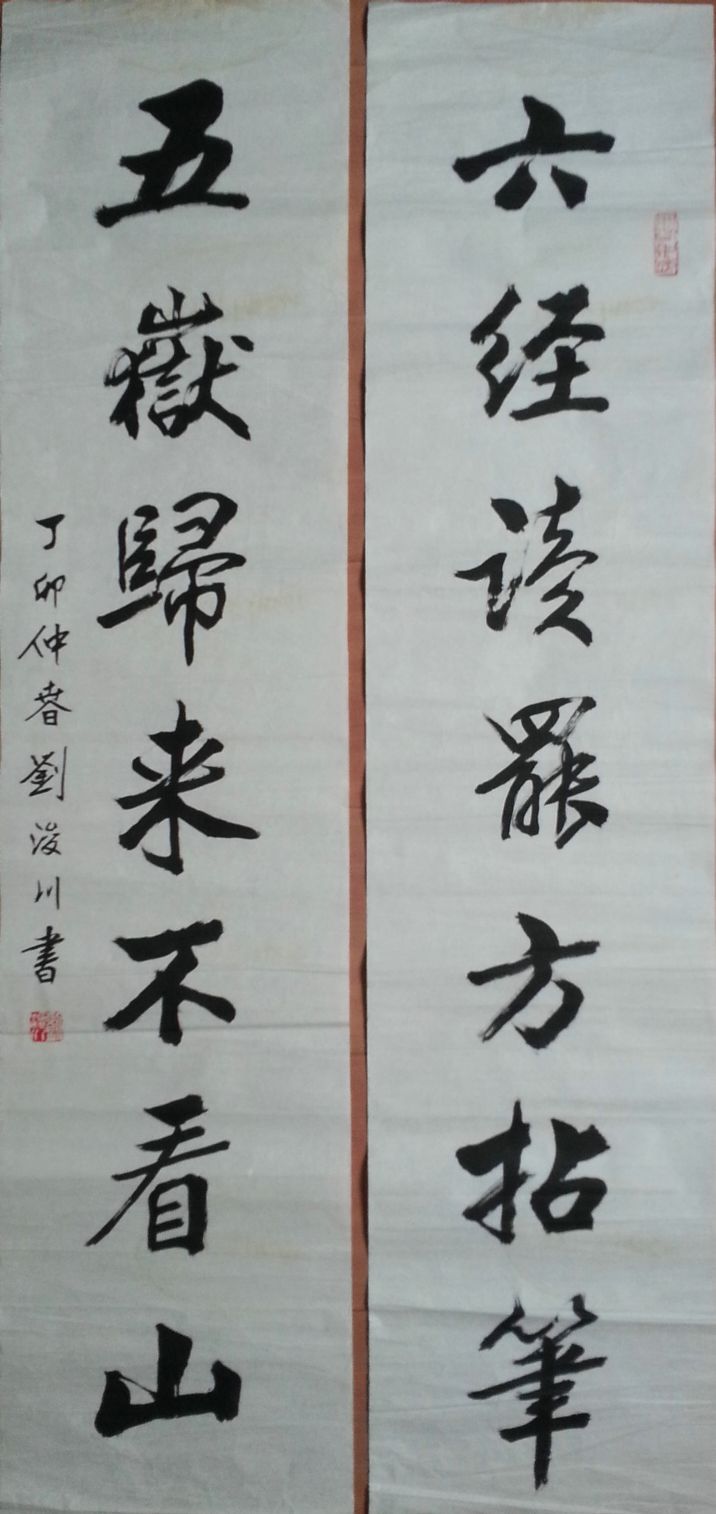 六经读罢方拈筆
五嶽歸来不看山
丁卯仲春劉浚川書